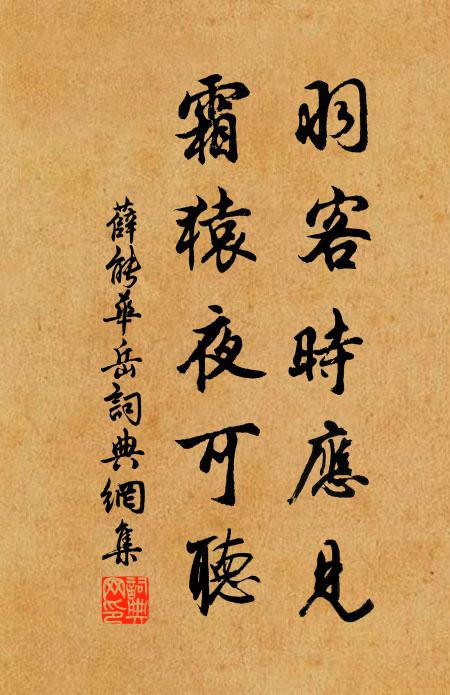 羽客時應見
霜猿夜可聽
薛能華岳詞典網集
詞典網印